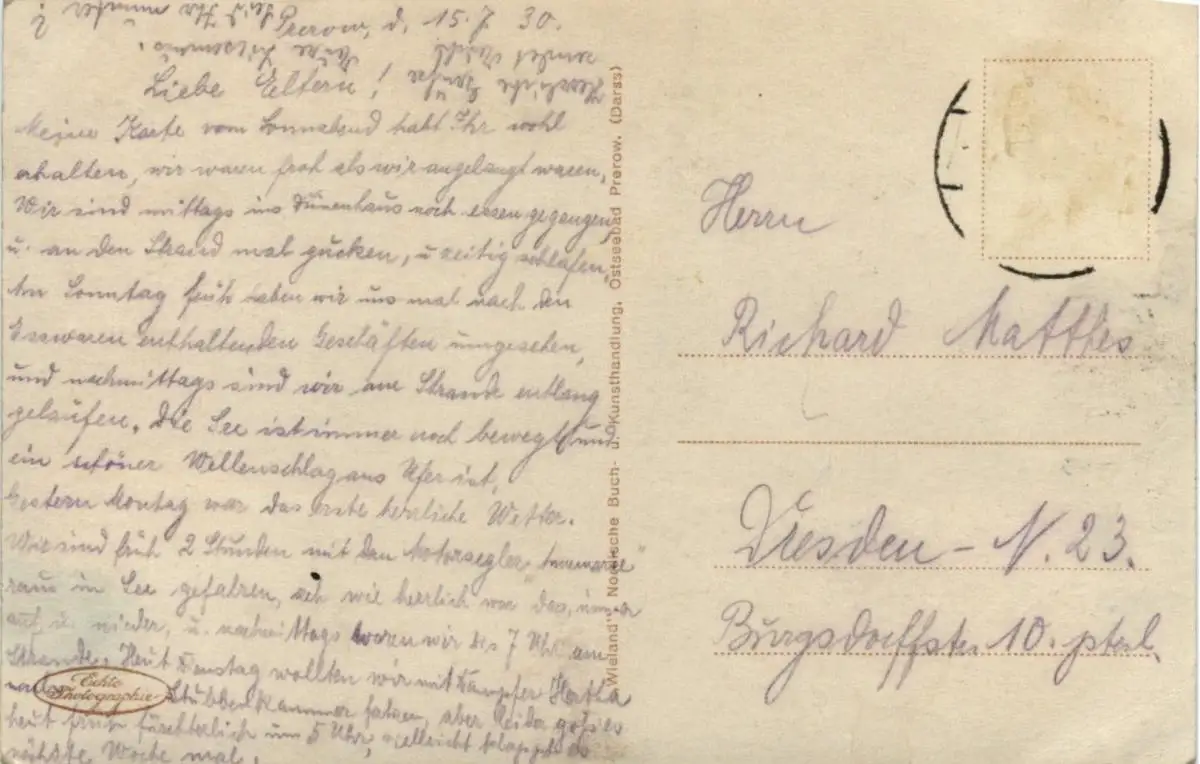 Prerow, d. 15.7.30.
Liebe Eltern!
Meine Karte vom Sonnabend habt Ihr wohl
erhalten, wir waren froh als wir angelangt waren,
Wir sind mittags ins Dünenhaus noch essen gegangen,
u. an den Strand mal gucken, u zeitig schlafen,
Am Sonntag früh haben wir uns mal nach den
Esswaren enthaltenden Geschäften umgesehen,
und nachmittags sind wir am Strande entlang
gelaufen. Die See ist immer noch bewegt und
ein schöner Wellenschlag ans Ufer ist,
Gestern Montag war das erste herrliche Wetter.
Wir sind früh 2 Stunden mit den Motorsegler
raus in See gefahren, ach wie herrlich war das, immer
auf u. nieder, u. nachmittags waren wir bis 7 Uhr am
Strande. Heut Dienstag wollten wir mit Dampfer Hertha
Stubbenkammer fahren, aber leider goss es
heut früh fürchterlich um 5 Uhr, vielleicht klappt es
nächste Woche mal.
Herzliche Grüße
sendet Euch Eure
Echte
Photographie
"Wieland", Nordische Buch- u. Kunsthandlung, Ostseebad Prerow. (Darss)
Herrn
Richard Matthes
Dresden - N. 23.
Burgsdorffstr. 10. ptrl.